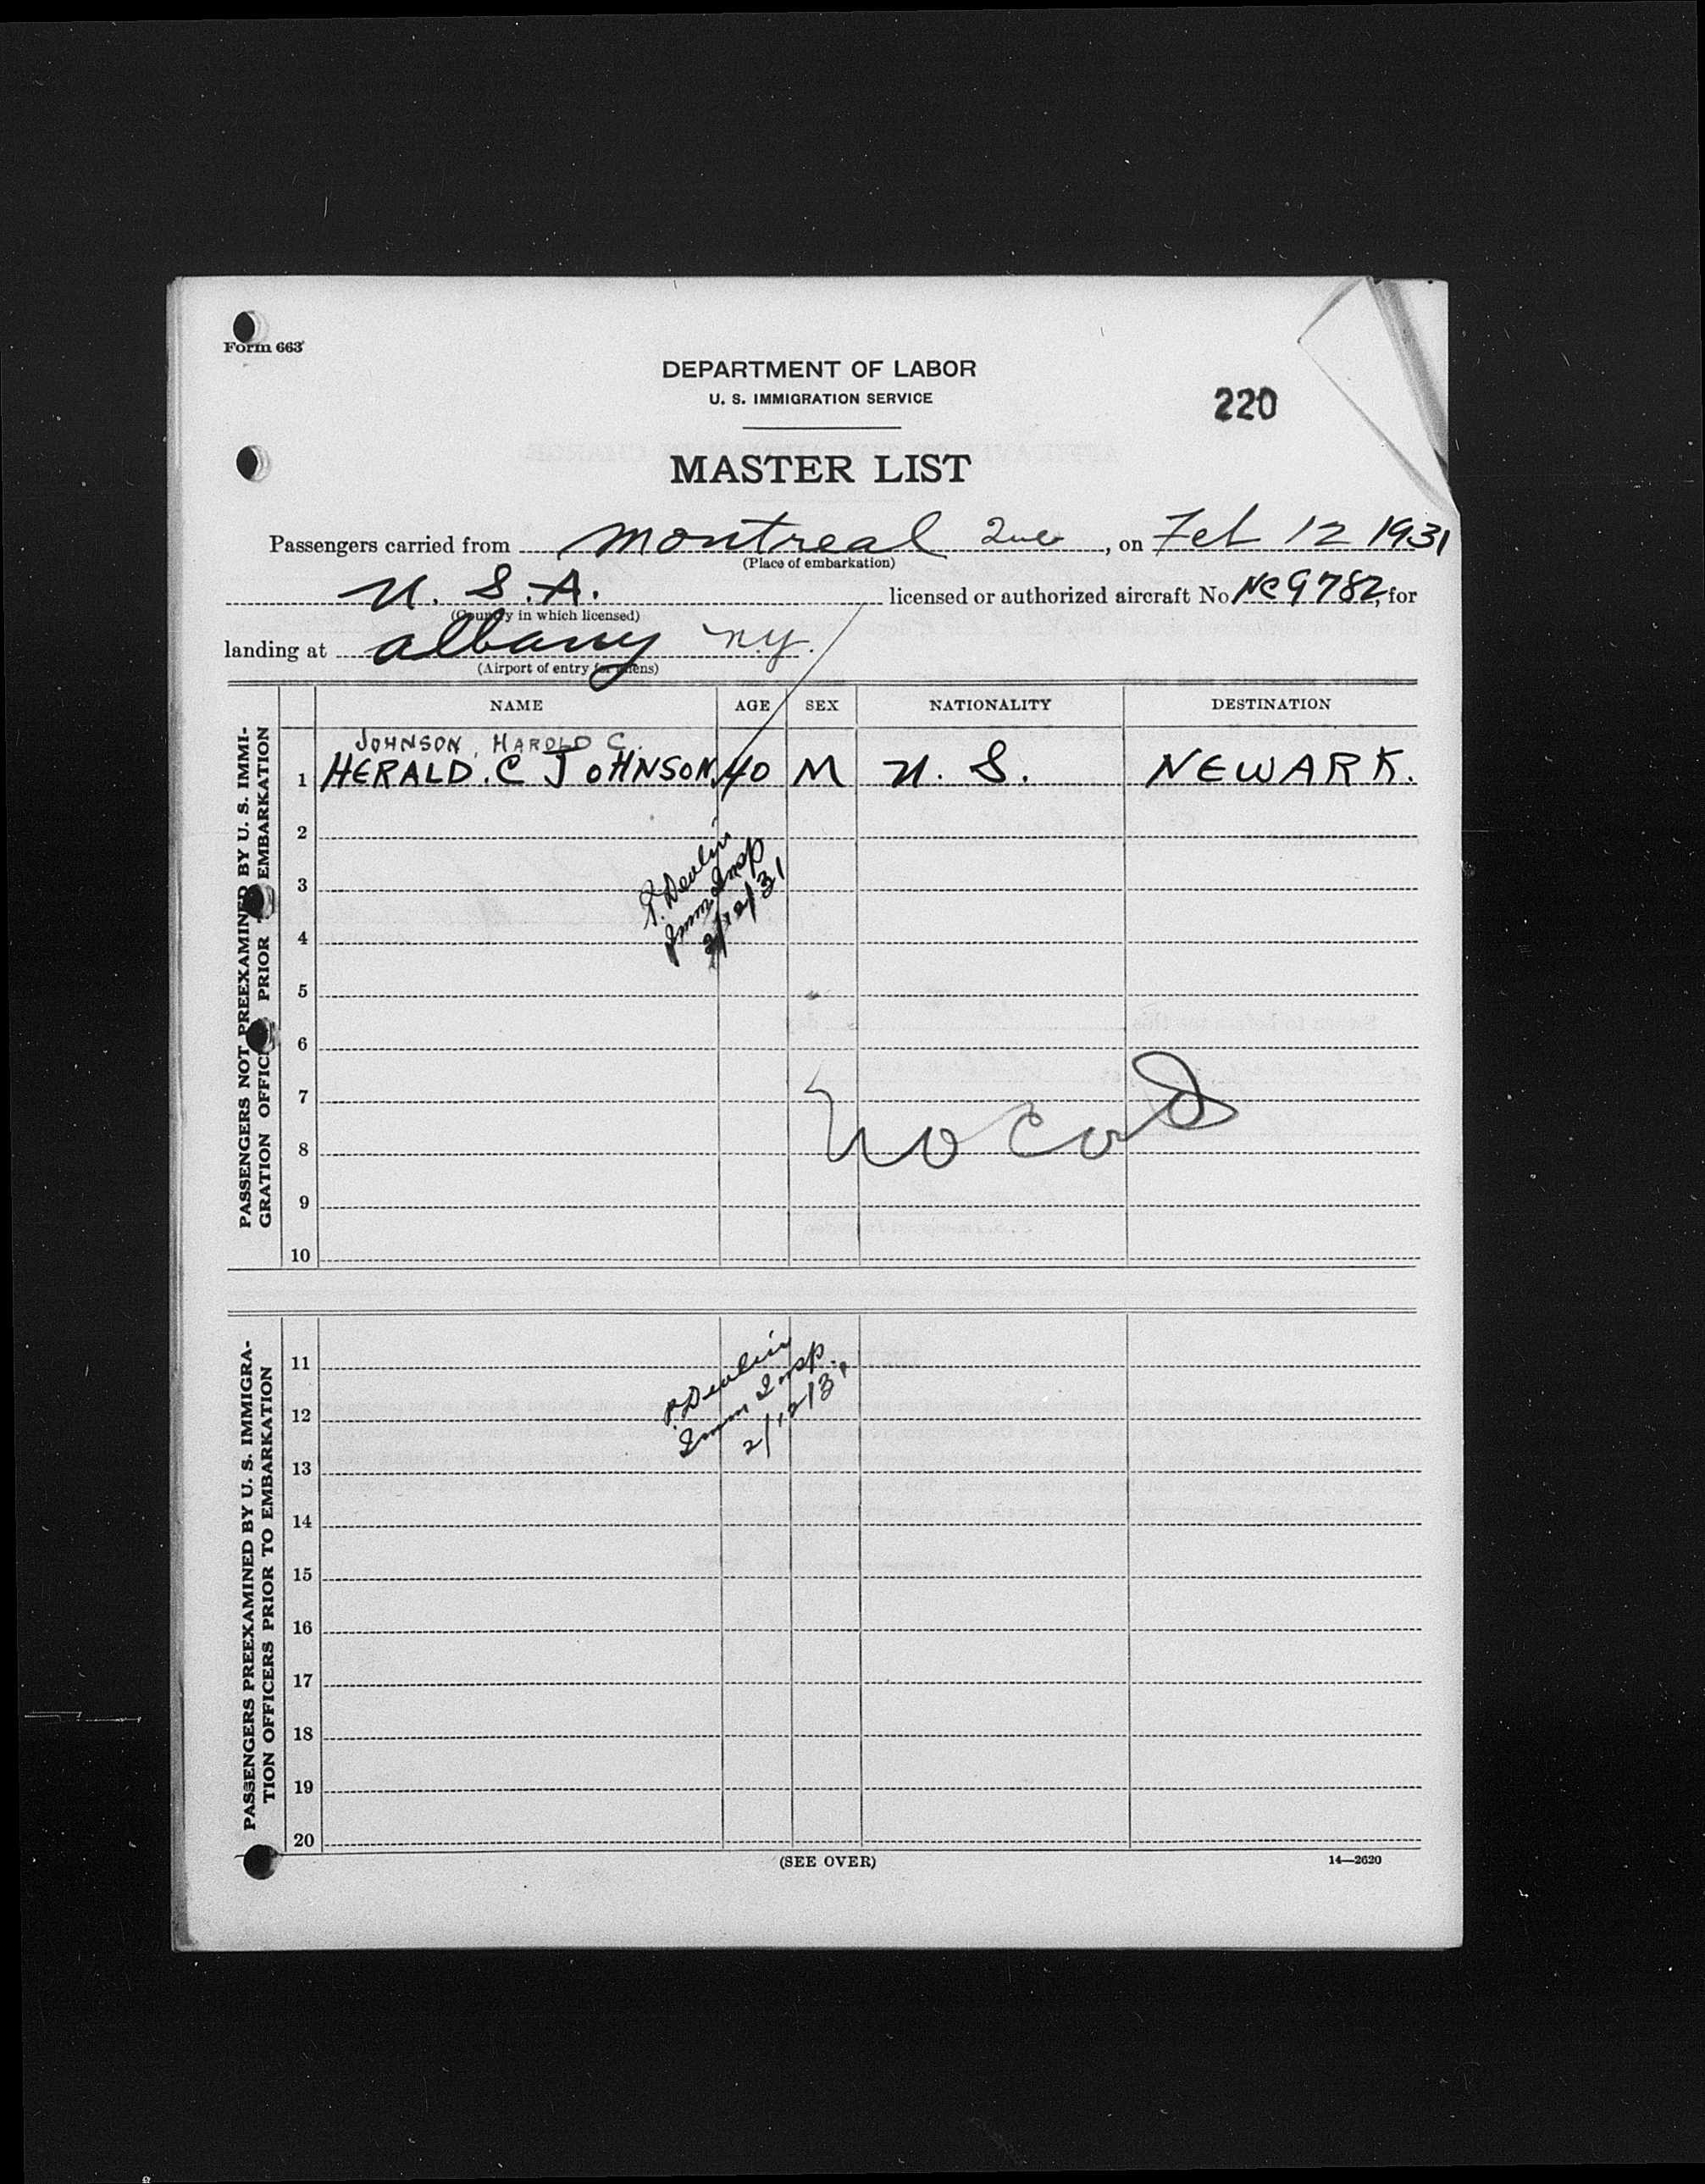 Form 663
DEPARTMENT OF LABOR
U. S. IMMIGRATION SERVICE
220
MASTER LIST
Passengers carried from Montreal Que, on Feb 12 1931
(Place of embarkation)
U. S. A. licensed or authorized aircraft No NC 9782, for
(Country in which licensed)
landing at Albany N.Y.
(Airport of entry for aliens)
NAME AGE SEX NATIONALITY DESTINATION
PASSENGERS NOT PREEXAMINED BY U. S. IMMI-
GRATION OFFICERS PRIOR EMBARKATION
JOHNSON, HAROLD C.
1 HERALD. C JOHNSON. 40 M U. S. NEWARK.
2
P. Devlin
Imm Insp
2/12/31
3
4
5
6
7
no card
8
9
10
PASSENGERS PREEXAMINED BY U. S. IMMIGRA-
TION OFFICERS PRIOR TO EMBARKATION
11
P. Devlin
Imm Insp.
2/12/31
12
13
14
15
16
17
18
19
20
(SEE OVER)
14—2620